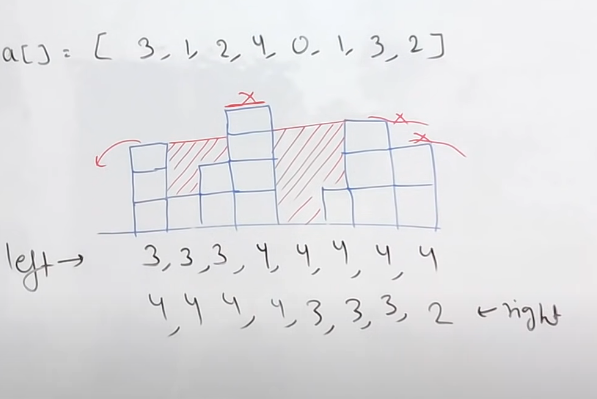 a[] = [ 3, 1, 2, 4, 0, 1, 3, 2 ]
x
x
x
left → 3, 3, 3, 4, 4, 4, 4, 4
4, 4, 4, 4, 3, 3, 3, 2 ← right